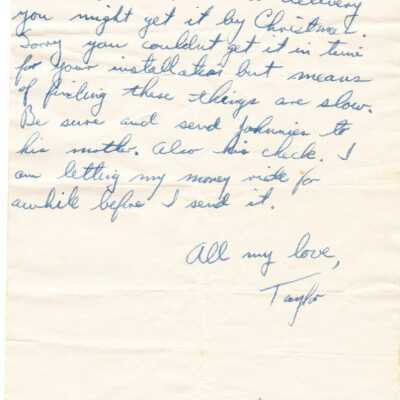 delivery
you might get it by Christmas.
Sorry you couldnt get it in time
for your installation but means
of finding these things are slow.
Be sure and send Johnnies to
his mother. Also his check. I
am letting my money ride for
awhile before I send it.
All my love,
Taylor